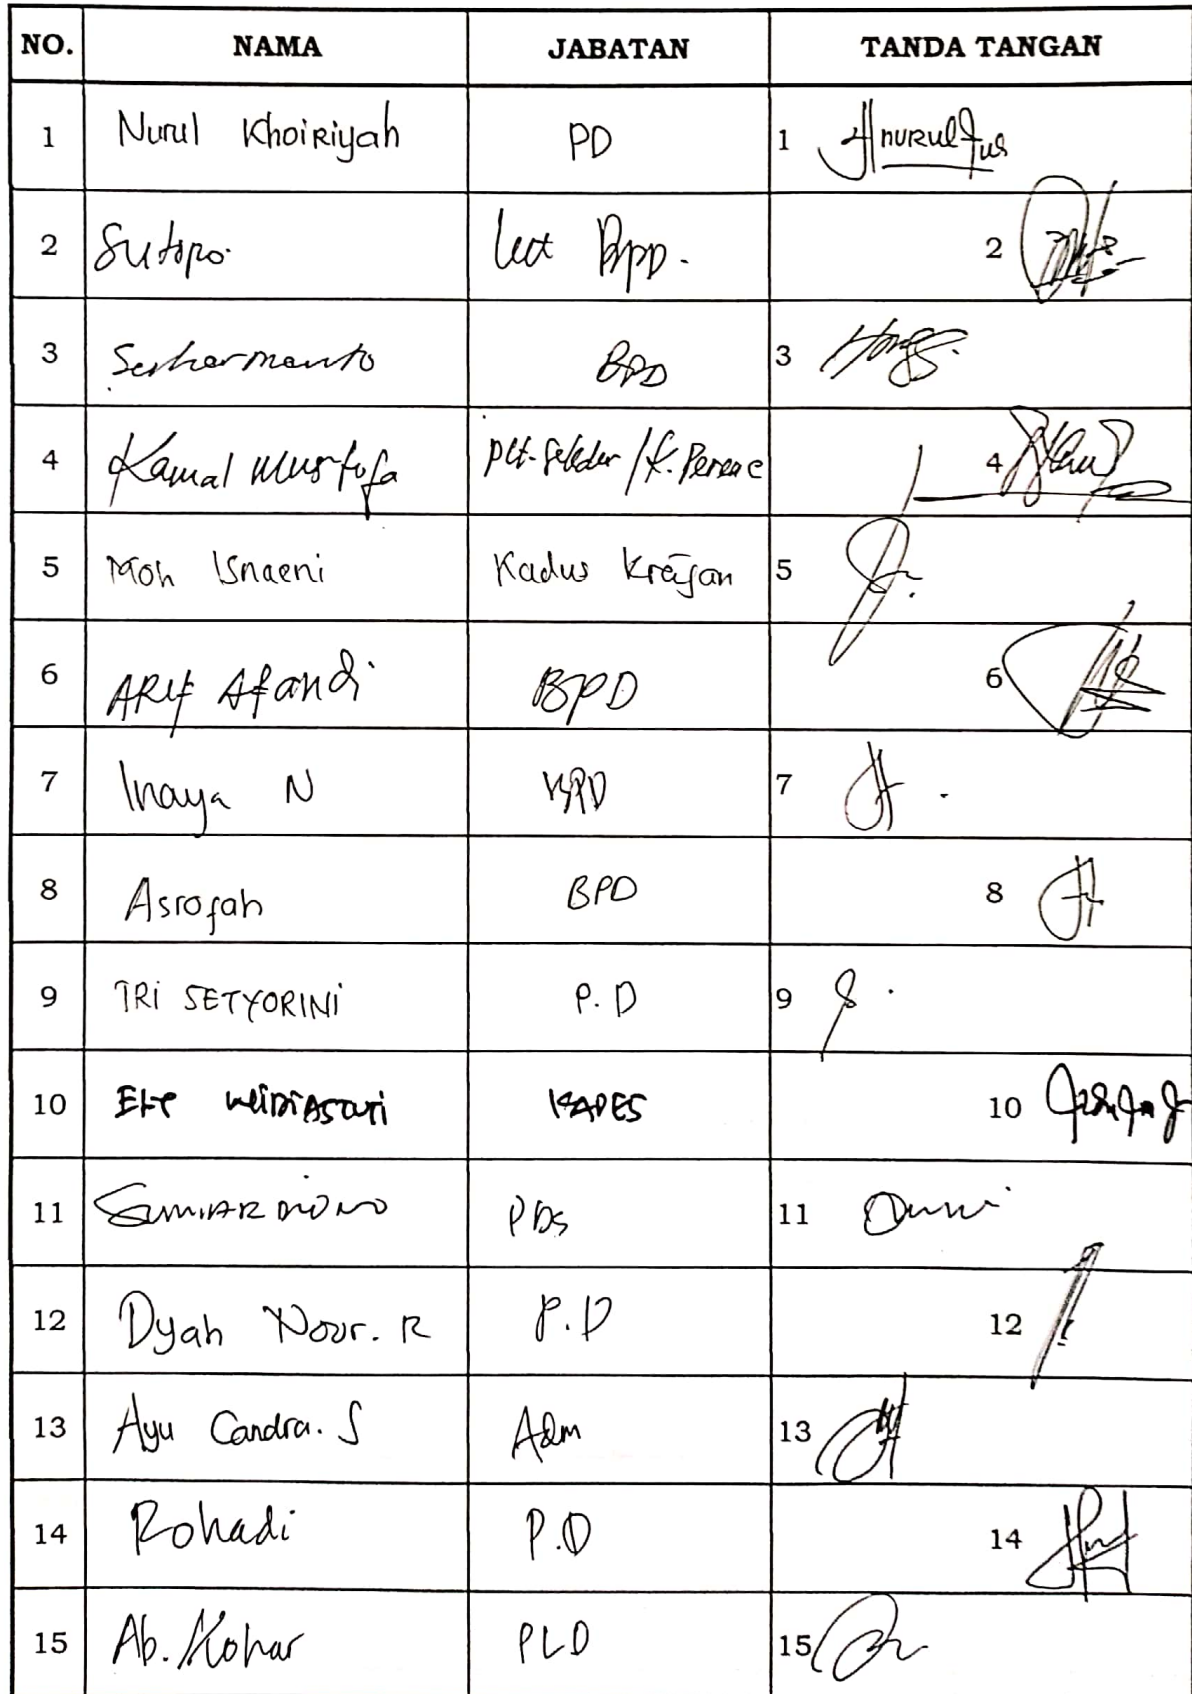 NO. NAMA JABATAN TANDA TANGAN
1 Nurul Khoiriyah PD 1 nurul
2 Sutopo. Ket BPD. 2
3 Suharmanto BPD 3
4 Kamal Mustofa Plt. Sekdes / K. Perenc 4
5 Moh Isnaeni Kadus Krajan 5
6 ARIF Afandi BPD 6
7 Inaya N BPD 7
8 Asrofah BPD 8
9 TRI SETYORINI P.D 9
10 KADES 10
11 11
12 Dyah Noor. R P.D 12
13 Ayu Candra. S Adm 13
14 Rohadi P.D 14
15 Ab. Kohar PLD 15